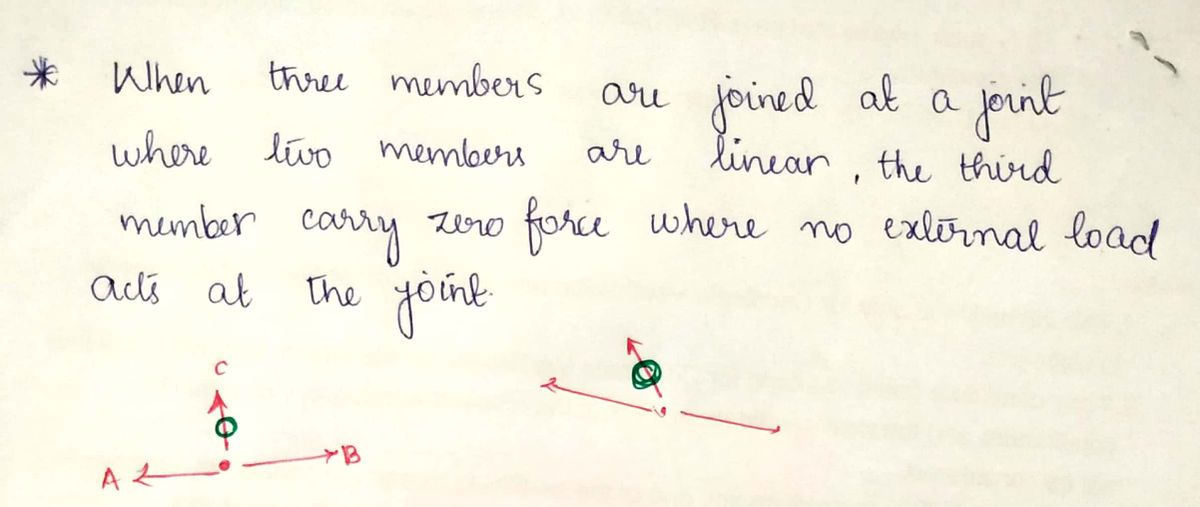 * When three members are joined at a joint
where two members are linear, the third
member carry zero force where no external load
acts at the joint.
C
A B